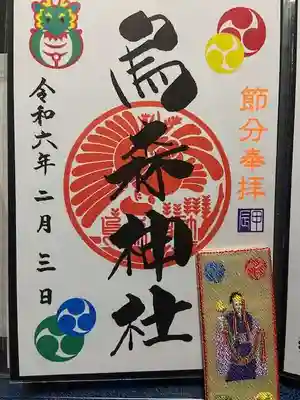 節分奉拝
甲辰
烏森神社
令和六年二月三日